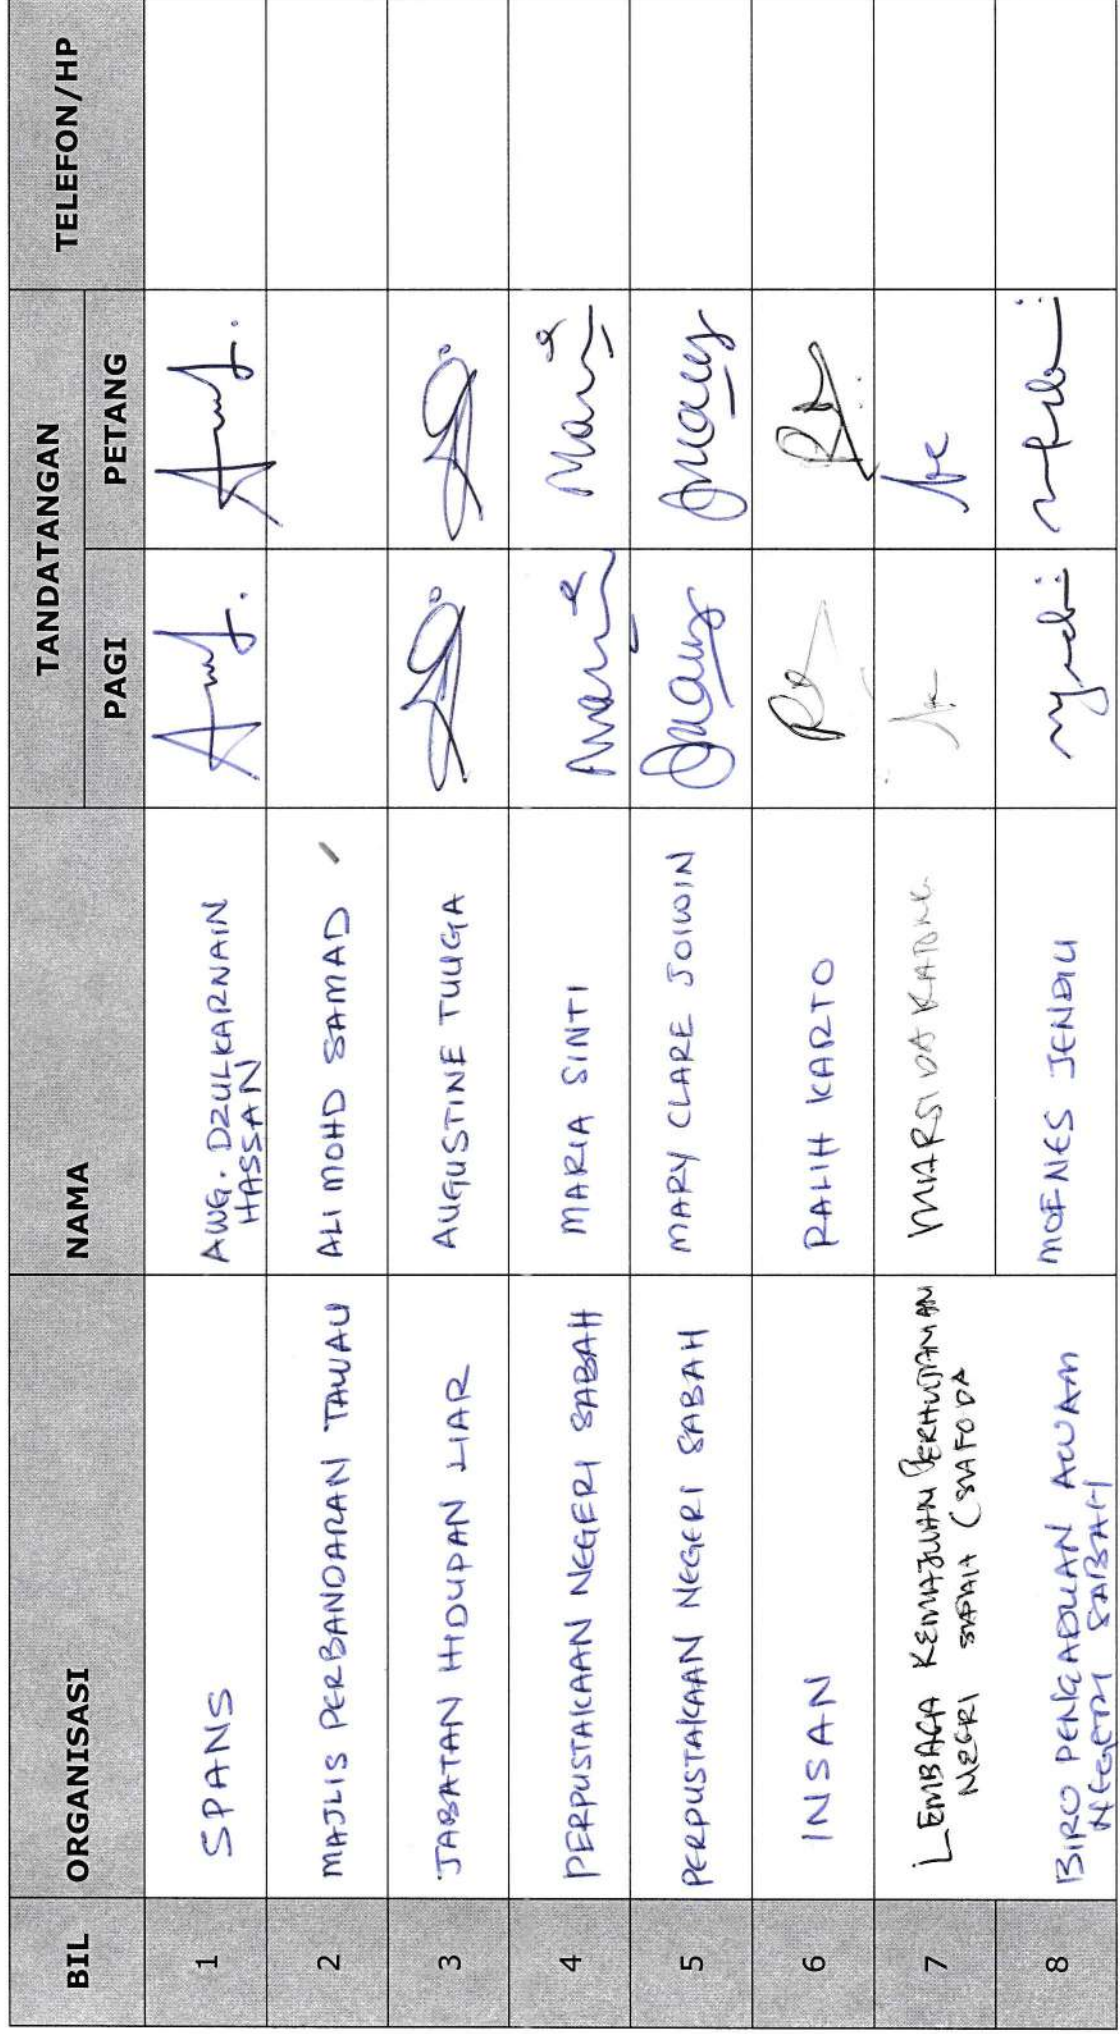 BIL ORGANISASI NAMA TANDATANGAN TELEFON/HP
PAGI PETANG
1 SPANS AWG. DZULKARNAIN
HASSAN
2 MAJLIS PERBANDARAN TAWAU ALI MOHD SAMAD
3 JABATAN HIDUPAN LIAR AUGUSTINE TUUGA
4 PERPUSTAKAAN NEGERI SABAH MARIA SINTI
5 PERPUSTAKAAN NEGERI SABAH MARY CLARE JOIWIN
6 INSAN RALIH KARTO
7 LEMBAGA KEMAJUAN PERHUTANAN MARSIDA
NEGRI SABAH (SAFODA
8 BIRO PENGADUAN AWAM MOFNES JENDIU
NEGERI SABAH